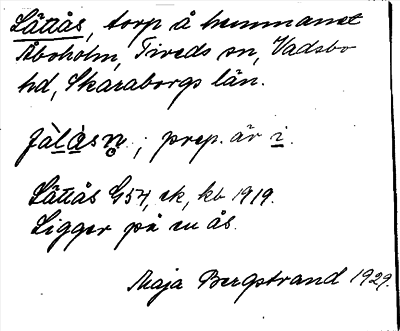 Lättås, torp å hemmanet
Åboholm, Tiveds sn, Vadsbo
hd, Skaraborgs län.
prep. är i.
Lättås G54, ek, kb 1919.
Ligger på en ås.
Maja Bergstrand 1929.